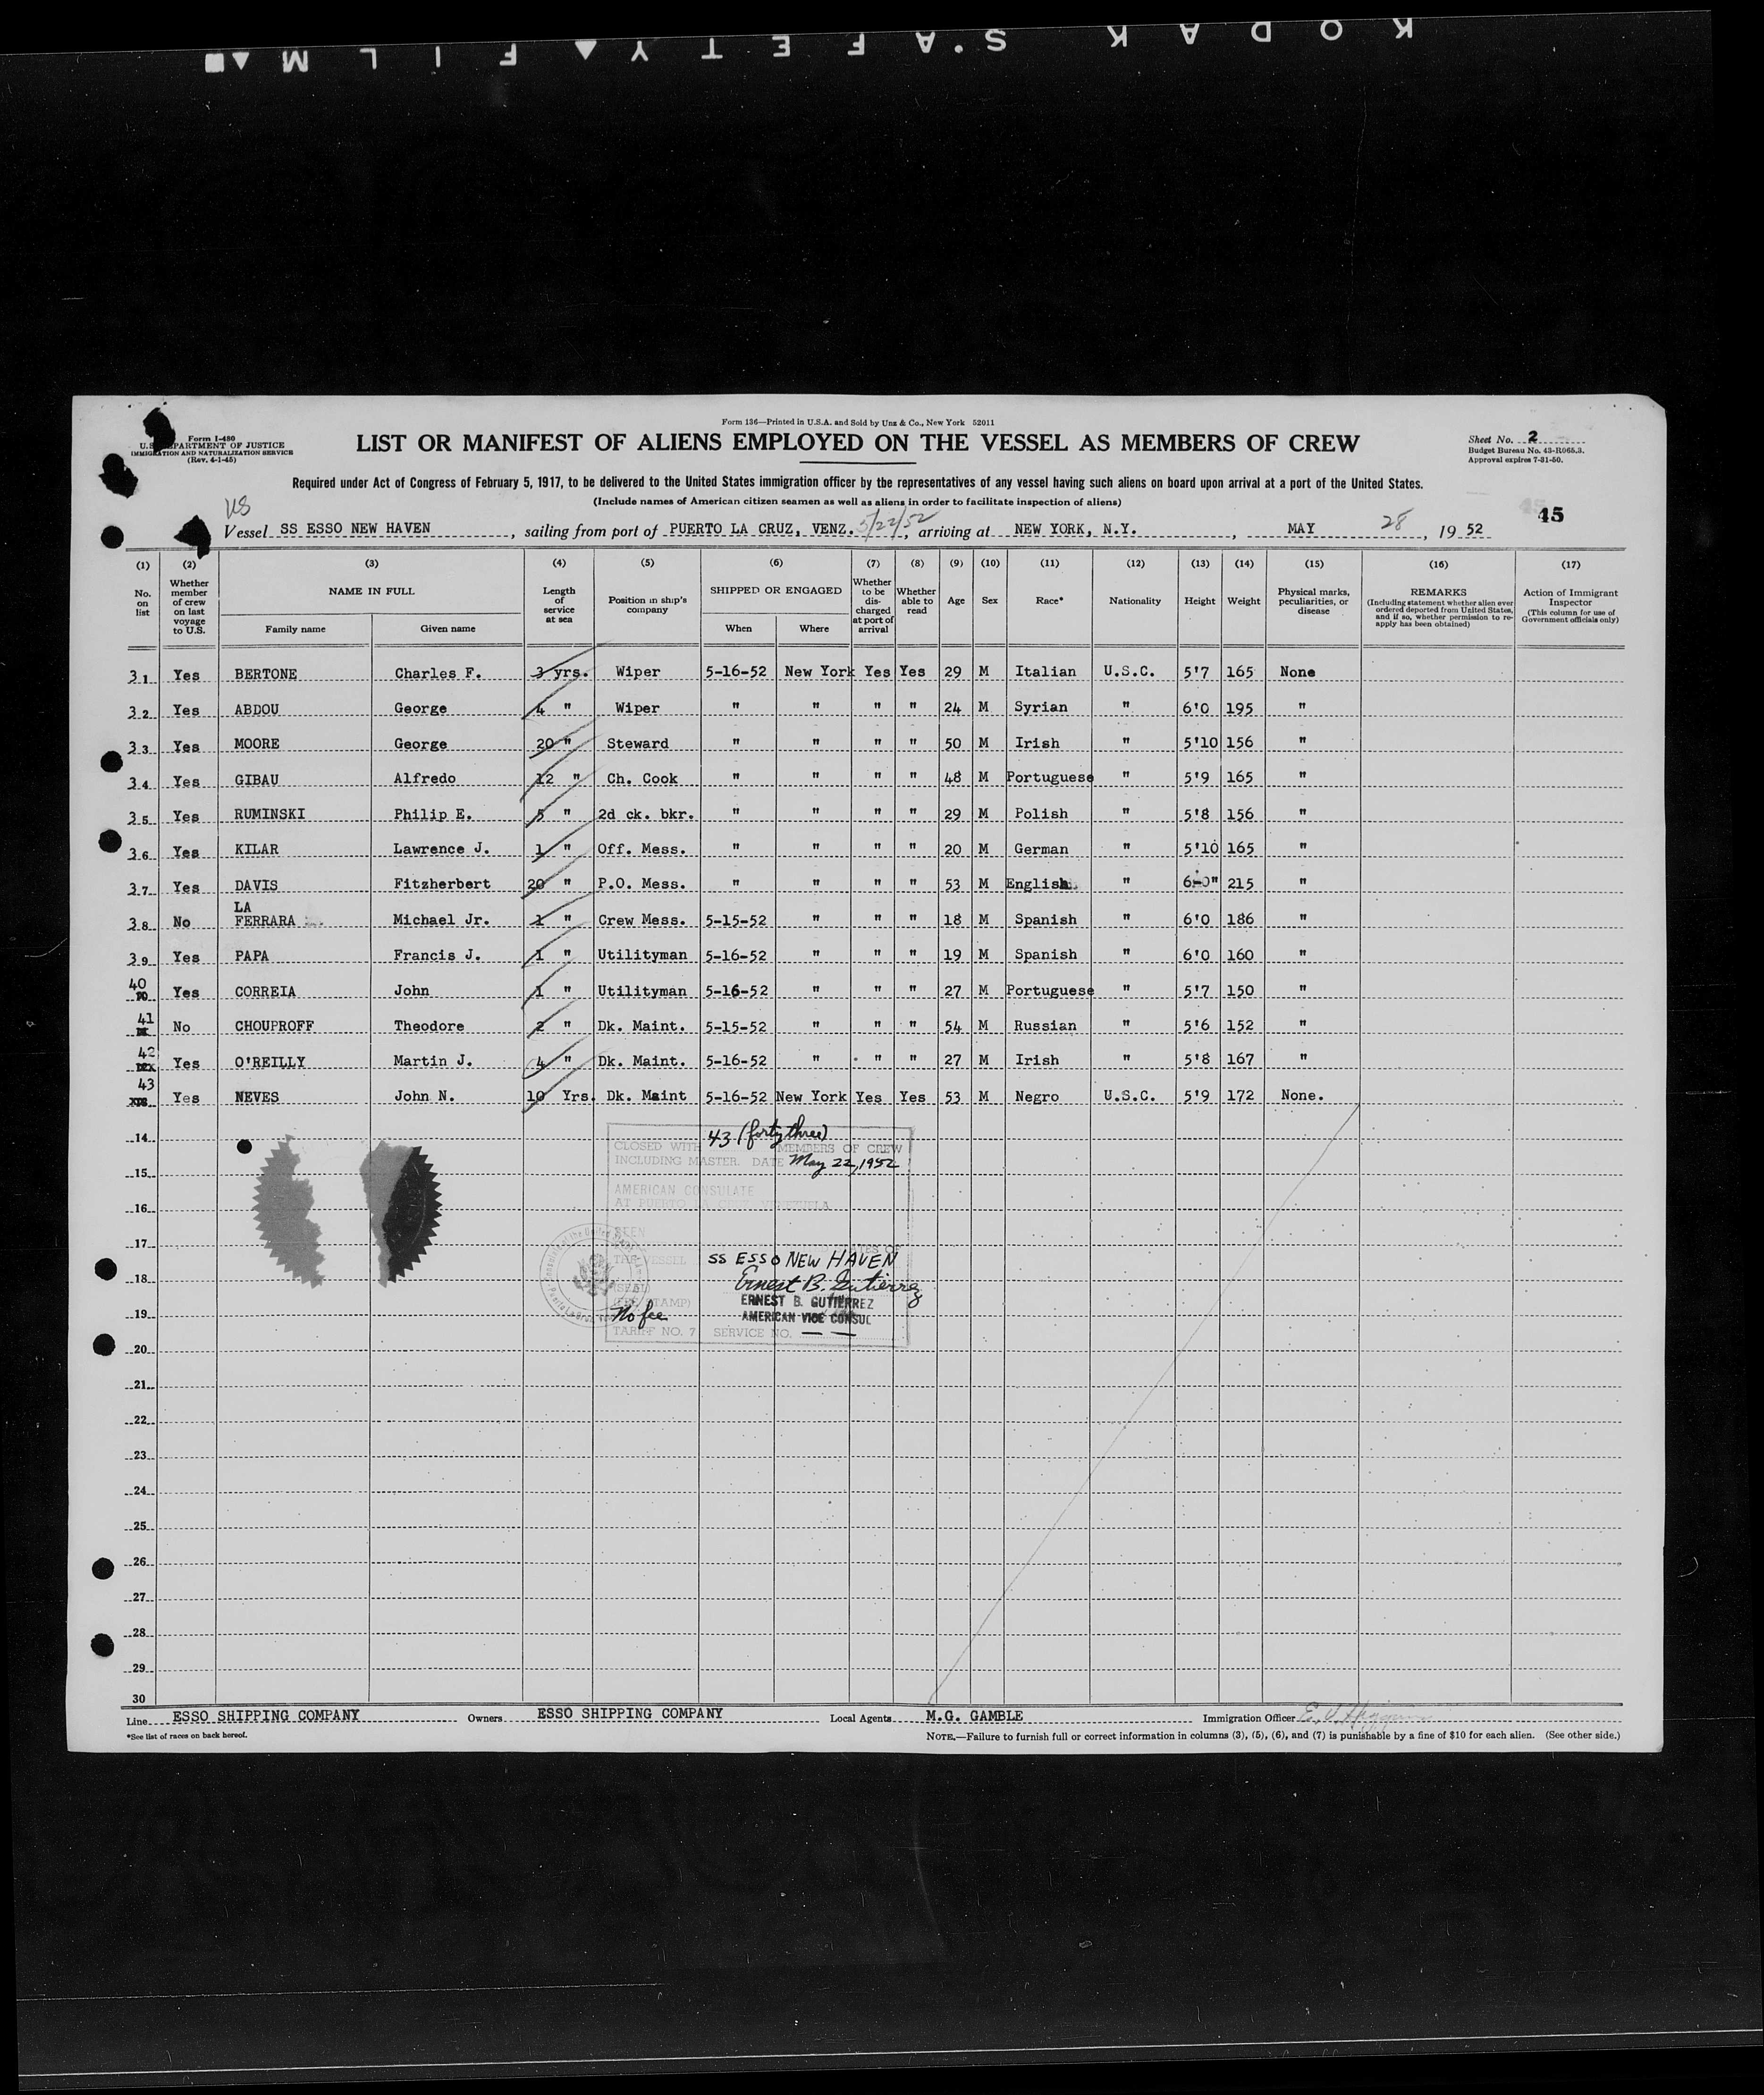 KODAK S.AFETY FILM
Form 136—Printed in U.S.A. and Sold by Unz & Co., New York 52011
Form I-480
U.S. DEPARTMENT OF JUSTICE
IMMIGRATION AND NATURALIZATION SERVICE
(Rev. 4-1-45)
LIST OR MANIFEST OF ALIENS EMPLOYED ON THE VESSEL AS MEMBERS OF CREW
Sheet No. 2
Budget Bureau No. 43-R065.3.
Approval expires 7-31-50.
Required under Act of Congress of February 5, 1917, to be delivered to the United States immigration officer by the representatives of any vessel having such aliens on board upon arrival at a port of the United States.
(Include names of American citizen seamen as well as aliens in order to facilitate inspection of aliens)
US
45
Vessel SS ESSO NEW HAVEN, sailing from port of PUERTO LA CRUZ, VENZ. 5/22/52, arriving at NEW YORK, N.Y., MAY 28, 1952
(1) (2) (3) (4) (5) (6) (7) (8) (9) (10) (11) (12) (13) (14) (15) (16) (17)
No. on list
Whether member of crew on last voyage to U.S.
NAME IN FULL
Family name Given name
Length of service at sea
Position in ship's company
SHIPPED OR ENGAGED
When Where
Whether to be discharged at port of arrival
Whether able to read
Age
Sex
Race*
Nationality
Height
Weight
Physical marks, peculiarities, or disease
REMARKS
(Including statement whether alien ever ordered deported from United States, and if so, whether permission to re-apply has been obtained)
Action of Immigrant Inspector
(This column for use of Government officials only)
31 Yes BERTONE Charles F. 3 yrs. Wiper 5-16-52 New York Yes Yes 29 M Italian U.S.C. 5'7 165 None
32 Yes ABDOU George 4 " Wiper " " " " 24 M Syrian " 6'0 195 "
33 Yes MOORE George 20 " Steward " " " " 50 M Irish " 5'10 156 "
34 Yes GIBAU Alfredo 12 " Ch. Cook " " " " 48 M Portuguese " 5'9 165 "
35 Yes RUMINSKI Philip E. 5 " 2d ck. bkr. " " " " 29 M Polish " 5'8 156 "
36 Yes KILAR Lawrence J. 1 " Off. Mess. " " " " 20 M German " 5'10 165 "
37 Yes DAVIS Fitzherbert 20 " P.O. Mess. " " " " 53 M English " 6-0" 215 "
38 No LA FERRARA Michael Jr. 1 " Crew Mess. 5-15-52 " " " 18 M Spanish " 6'0 186 "
39 Yes PAPA Francis J. 1 " Utilityman 5-16-52 " " " 19 M Spanish " 6'0 160 "
40 Yes CORREIA John 1 " Utilityman 5-16-52 " " " 27 M Portuguese " 5'7 150 "
41 No CHOUPROFF Theodore 2 " Dk. Maint. 5-15-52 " " " 54 M Russian " 5'6 152 "
42 Yes O'REILLY Martin J. 4 " Dk. Maint. 5-16-52 " " " 27 M Irish " 5'8 167 "
43 Yes NEVES John N. 10 Yrs. Dk. Maint 5-16-52 New York Yes Yes 53 M Negro U.S.C. 5'9 172 None.
14
CLOSED WITH 43 (forty three) MEMBERS OF CREW
INCLUDING MASTER. DATE May 22, 1952
15
AMERICAN CONSULATE
AT PUERTO LA CRUZ, VENEZUELA
16
SEEN
17
THE VESSEL SS ESSO NEW HAVEN
18
Ernest B. Gutierrez
(SEAL)
ERNEST B. GUTIERREZ
19
No fee
AMERICAN VICE CONSUL
TARIFF NO. 7 SERVICE NO. — —
20
21
22
23
24
25
26
27
28
29
30
Line ESSO SHIPPING COMPANY Owners ESSO SHIPPING COMPANY Local Agents M.G. GAMBLE Immigration Officer
*See list of races on back hereof.
NOTE.—Failure to furnish full or correct information in columns (3), (5), (6), and (7) is punishable by a fine of $10 for each alien. (See other side.)